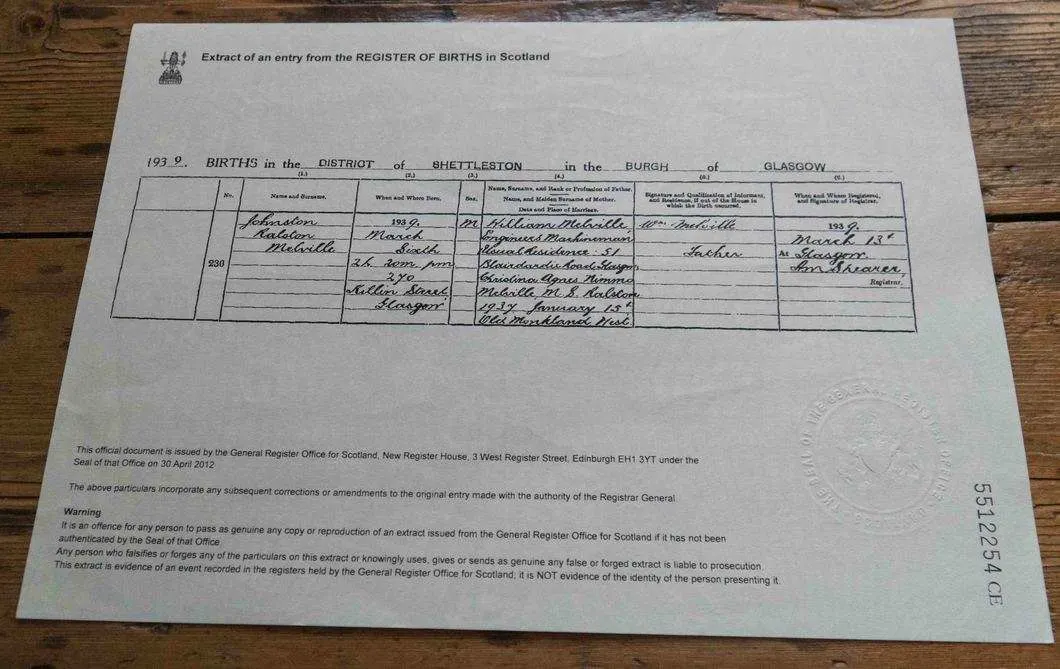 Extract of an entry from the REGISTER OF BIRTHS in Scotland
1939. BIRTHS in the DISTRICT of SHETTLESTON in the BURGH of GLASGOW
(1.) (2.) (3.) (4.) (5.) (6.)
No.
Name and Surname.
When and Where Born.
Sex.
Name, Surname, and Rank or Profession of Father.
Name, and Maiden Surname of Mother.
Date and Place of Marriage.
Signature and Qualification of Informant,
and Residence, if out of the House in
which the Birth occurred.
When and Where Registered,
and Signature of Registrar.
230
Johnston
Ralston
Melville
1939.
March
Sixth
2h. 20m. pm
270
Killin Street
Glasgow
M
William Melville
Engineers Machineman
Usual Residence 51
Blairdardie Road Glasgow
Christina Agnes Nimmo
Melville M.S. Ralston
1937 January 15th
Old Monkland West.
Wm. Melville
Father
1939.
March 13th
At Glasgow.
Shearer,
Registrar.
This official document is issued by the General Register Office for Scotland, New Register House, 3 West Register Street, Edinburgh EH1 3YT under the
Seal of that Office on 30 April 2012
The above particulars incorporate any subsequent corrections or amendments to the original entry made with the authority of the Registrar General
Warning
It is an offence for any person to pass as genuine any copy or reproduction of an extract issued from the General Register Office for Scotland if it has not been
authenticated by the Seal of that Office
Any person who falsifies or forges any of the particulars on this extract or knowingly uses, gives or sends as genuine any false or forged extract is liable to prosecution.
This extract is evidence of an event recorded in the registers held by the General Register Office for Scotland; it is NOT evidence of the identity of the person presenting it.
5512254 CE